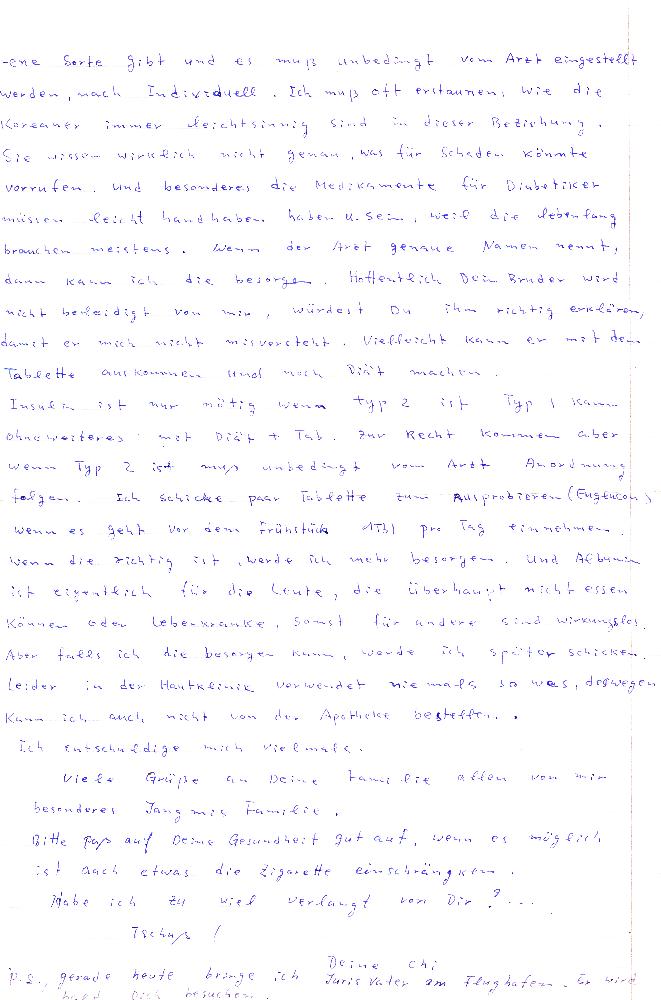 -ene Sorte gibt und es muß unbedingt vom Arzt eingestellt
werden, nach Individuell. Ich muß oft erstaunen, wie die
Koreaner immer leichtsinnig sind in dieser Beziehung.
Sie wissen wirklich nicht genau, was für Schaden könnte
vorrufen. und besonderes die Medikamente für Diabetiker
müssen leicht handhaben haben u. sein, weil die lebenlang
brauchen meistens. Wenn der Arzt genaue Namen nennt,
dann kann ich die besorgen. Hoffentlich Dein Bruder wird
nicht beleidigt von mir, würdest Du ihm richtig erklären,
damit er mich nicht misversteht. Vielleicht kann er mit den
Tablette auskommen und noch Diät machen.
Insulin ist nur nötig wenn typ 2 ist Typ 1 kann
ohneweiteres mit Diät + Tab. zur Recht kommen aber
wenn Typ 2 ist muß unbedingt vom Arzt Anordnung
folgen. Ich schicke paar Tablette zum Ausprobieren (Euglucon)
wenn es geht vor dem Frühstück 1Tbl pro Tag einnehmen.
wenn die richtig ist, werde ich mehr besorgen. Und Albumin
ist eigentlich für die Leute, die überhaupt nicht essen
können oder Leberkranke, sonst für andere sind wirkungslos.
Aber falls ich die besorgen kann, werde ich später schicken.
Leider in der Hautklinik verwendet niemals so was, deswegen
kann ich auch nicht von der Apotheke bestellen..
Ich entschuldige mich vielmals.
Viele Grüße an Deine Familie allen von mir
besonderes Jangmis Familie.
Bitte paß auf Deine Gesundheit gut auf, wenn es möglich
ist auch etwas die Zigarette einschrängken.
Habe ich zu viel verlangt von Dir?...
Tschüß!
Deine Chi
P.S., gerade heute bringe ich Juris Vater am Flughafen. Er wird
bald Dich besuchen.